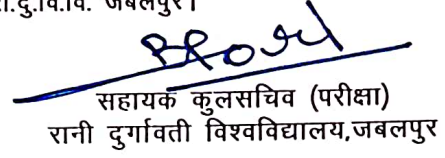 रा.दु.वि.वि. जबलपुर।
सहायक कुलसचिव (परीक्षा)
रानी दुर्गावती विश्वविद्यालय,जबलपुर